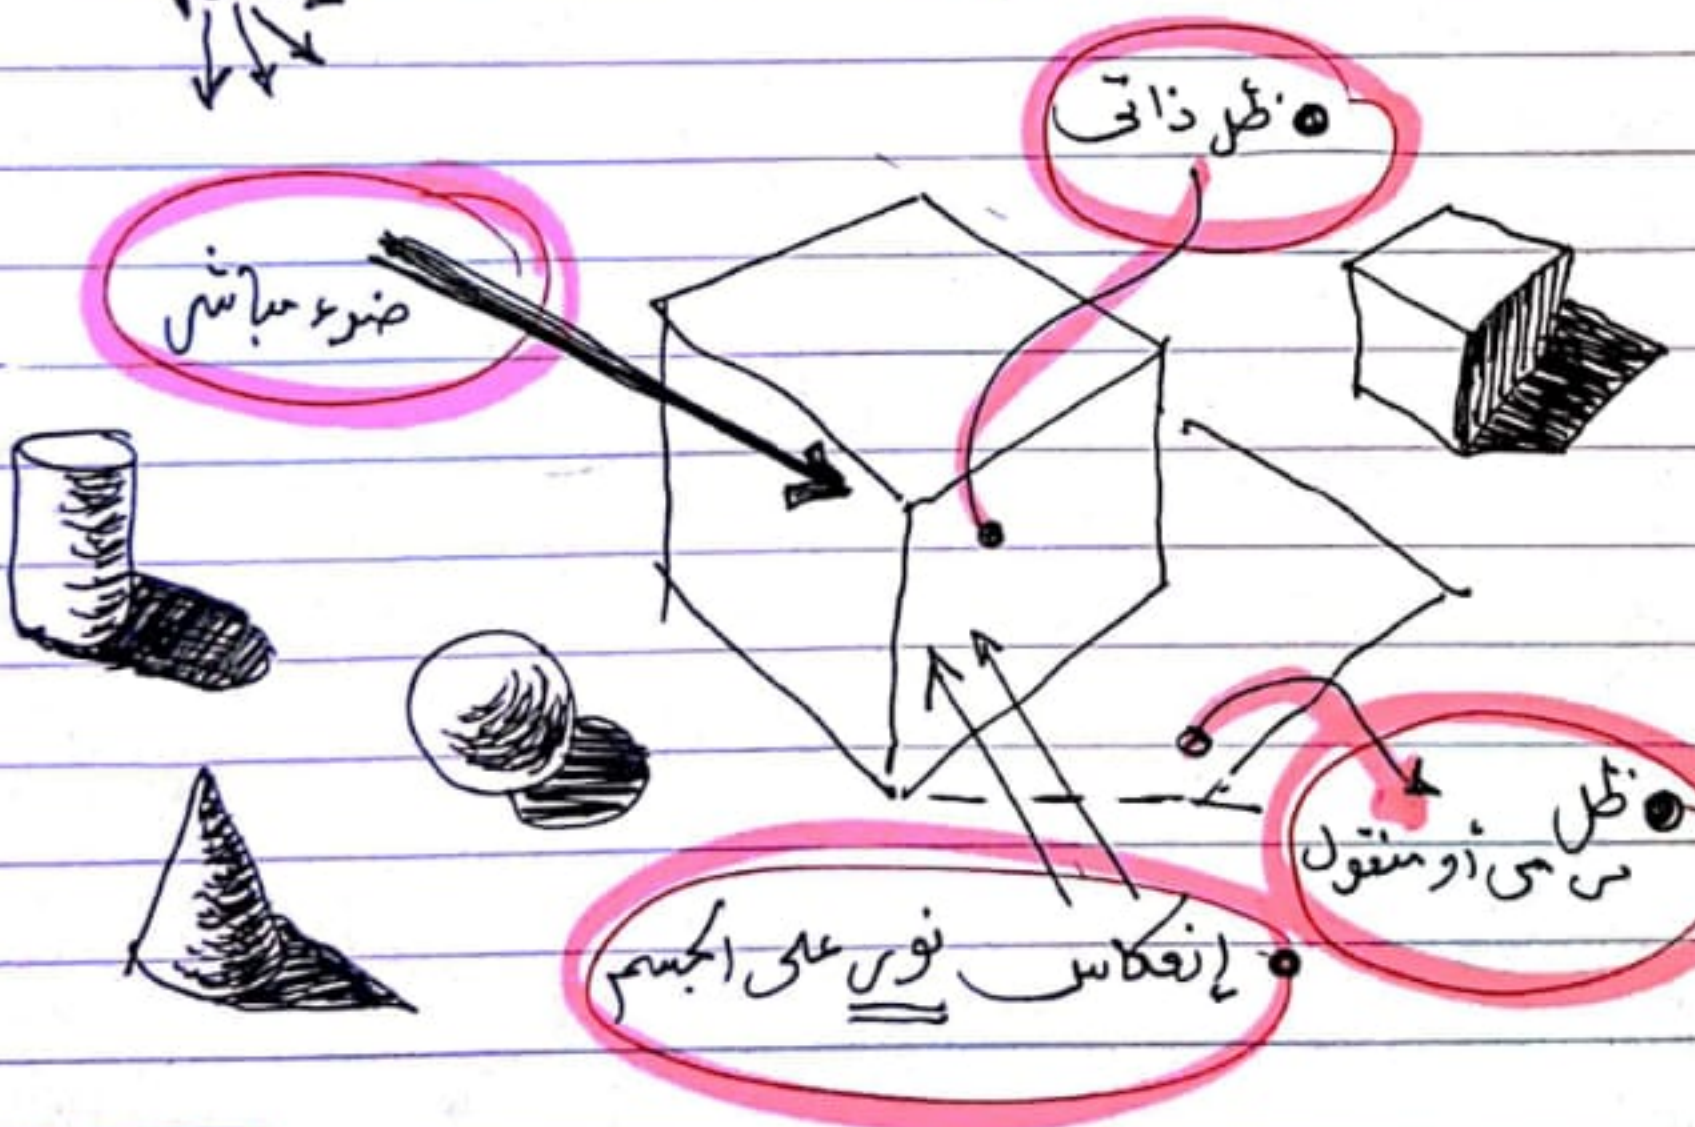 ظل ذاتى
ضوء مباشر
ظل
مرمى أو منقول
إنعكاس نور على الجسم